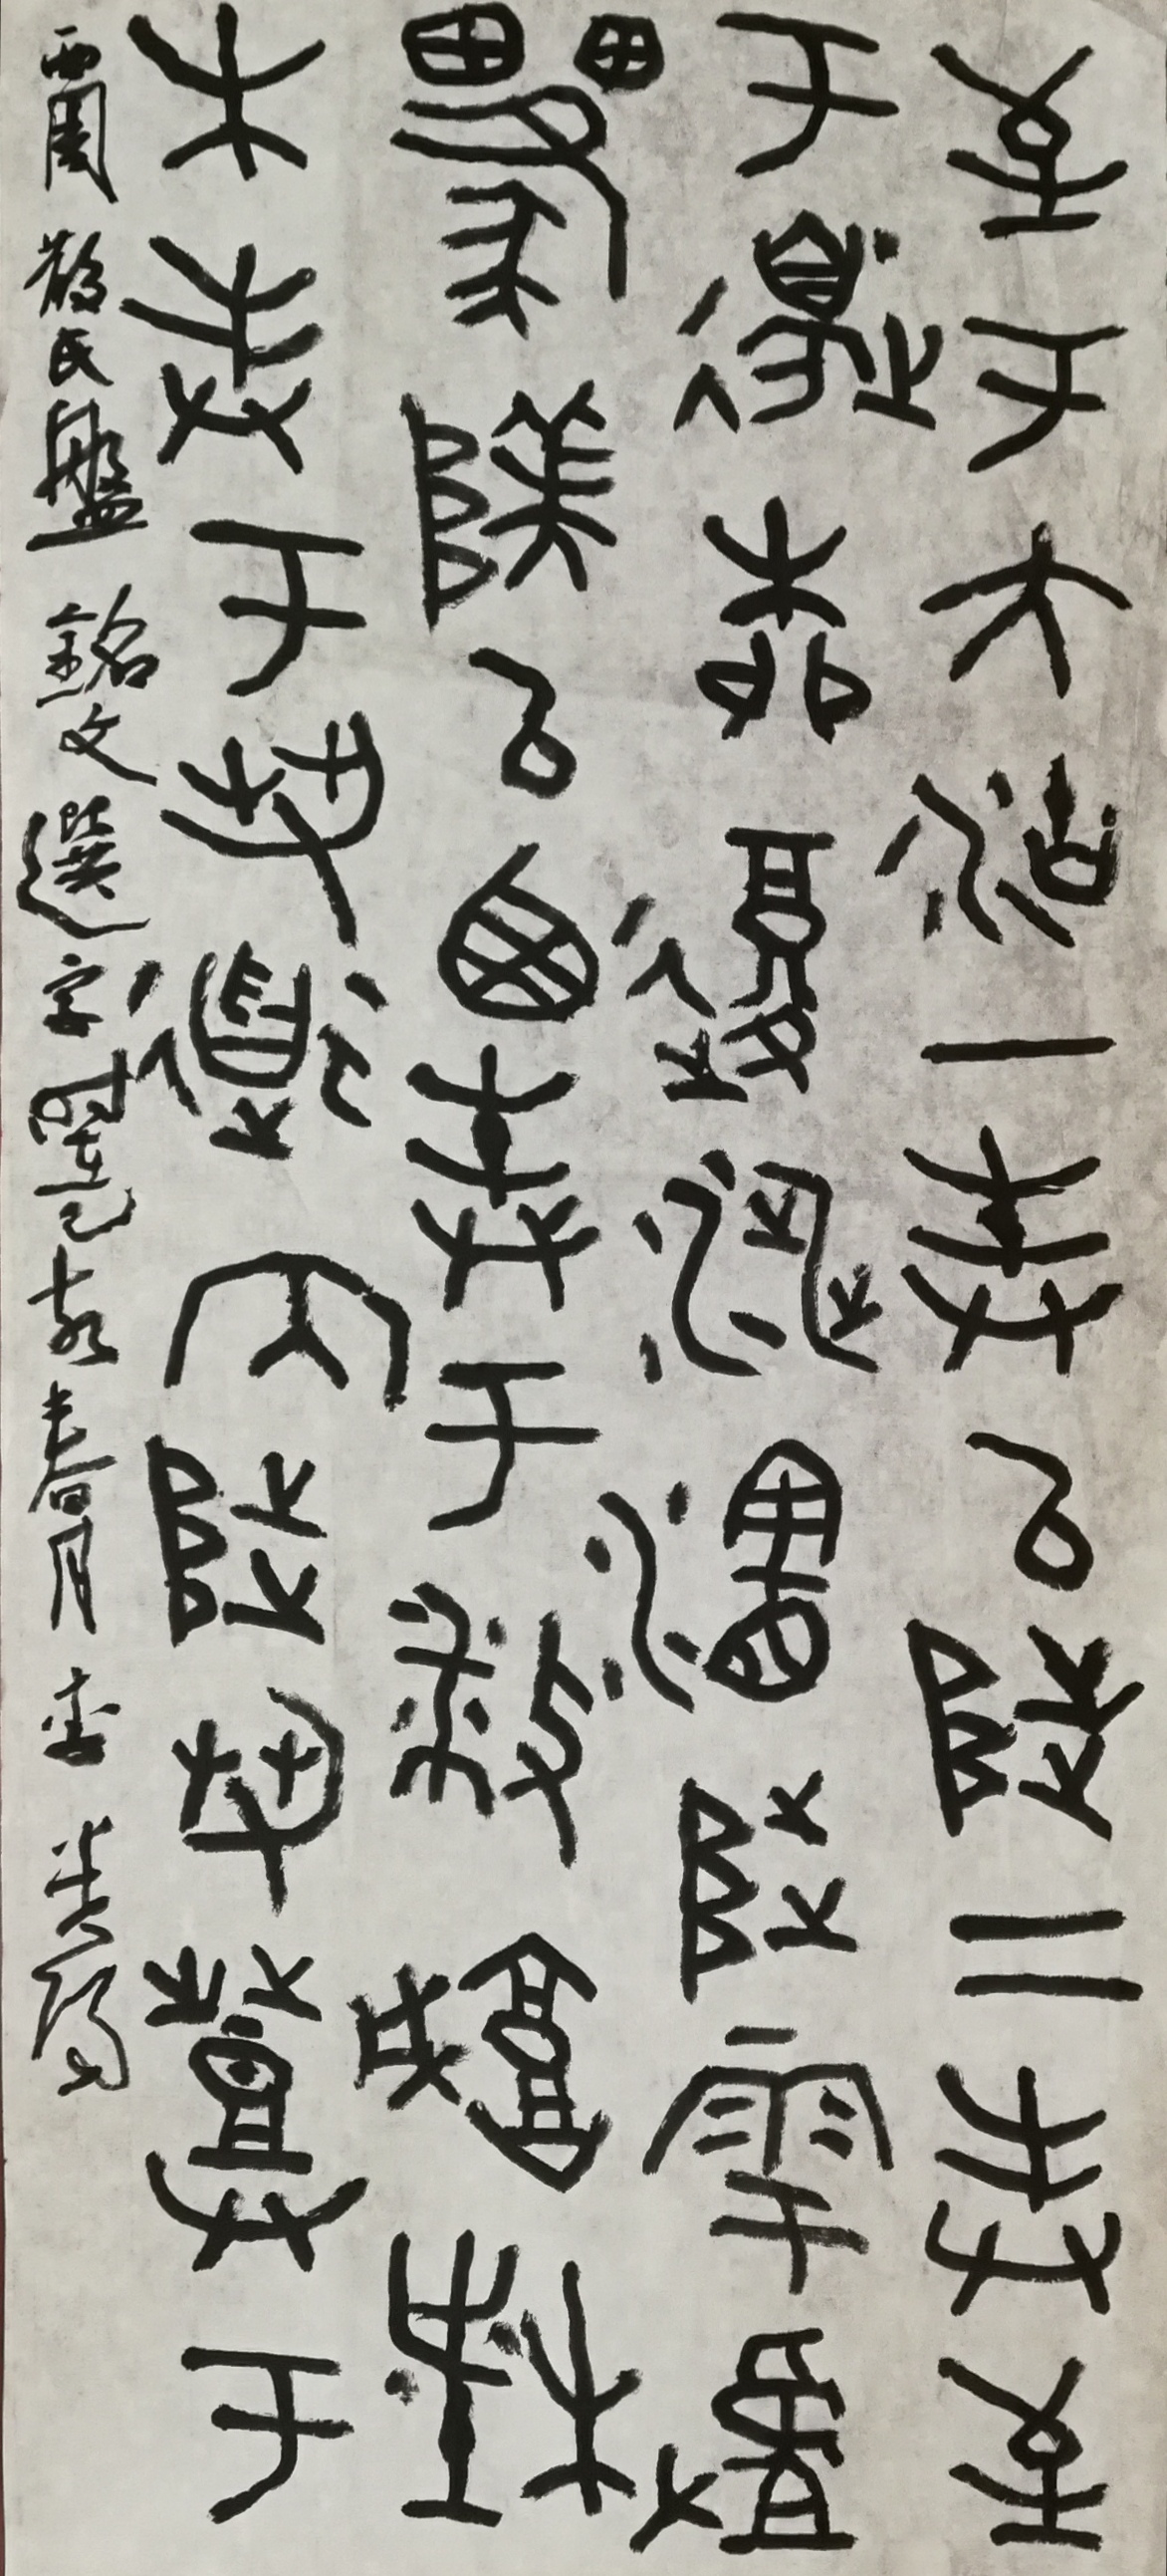 至于大沽一封以陟二封至
于邊柳復涉瀗陟雩
以西封于播城楮
木封于芻道內陟芻登于
西周 散氏盤 銘文選字 时在己亥春月 李